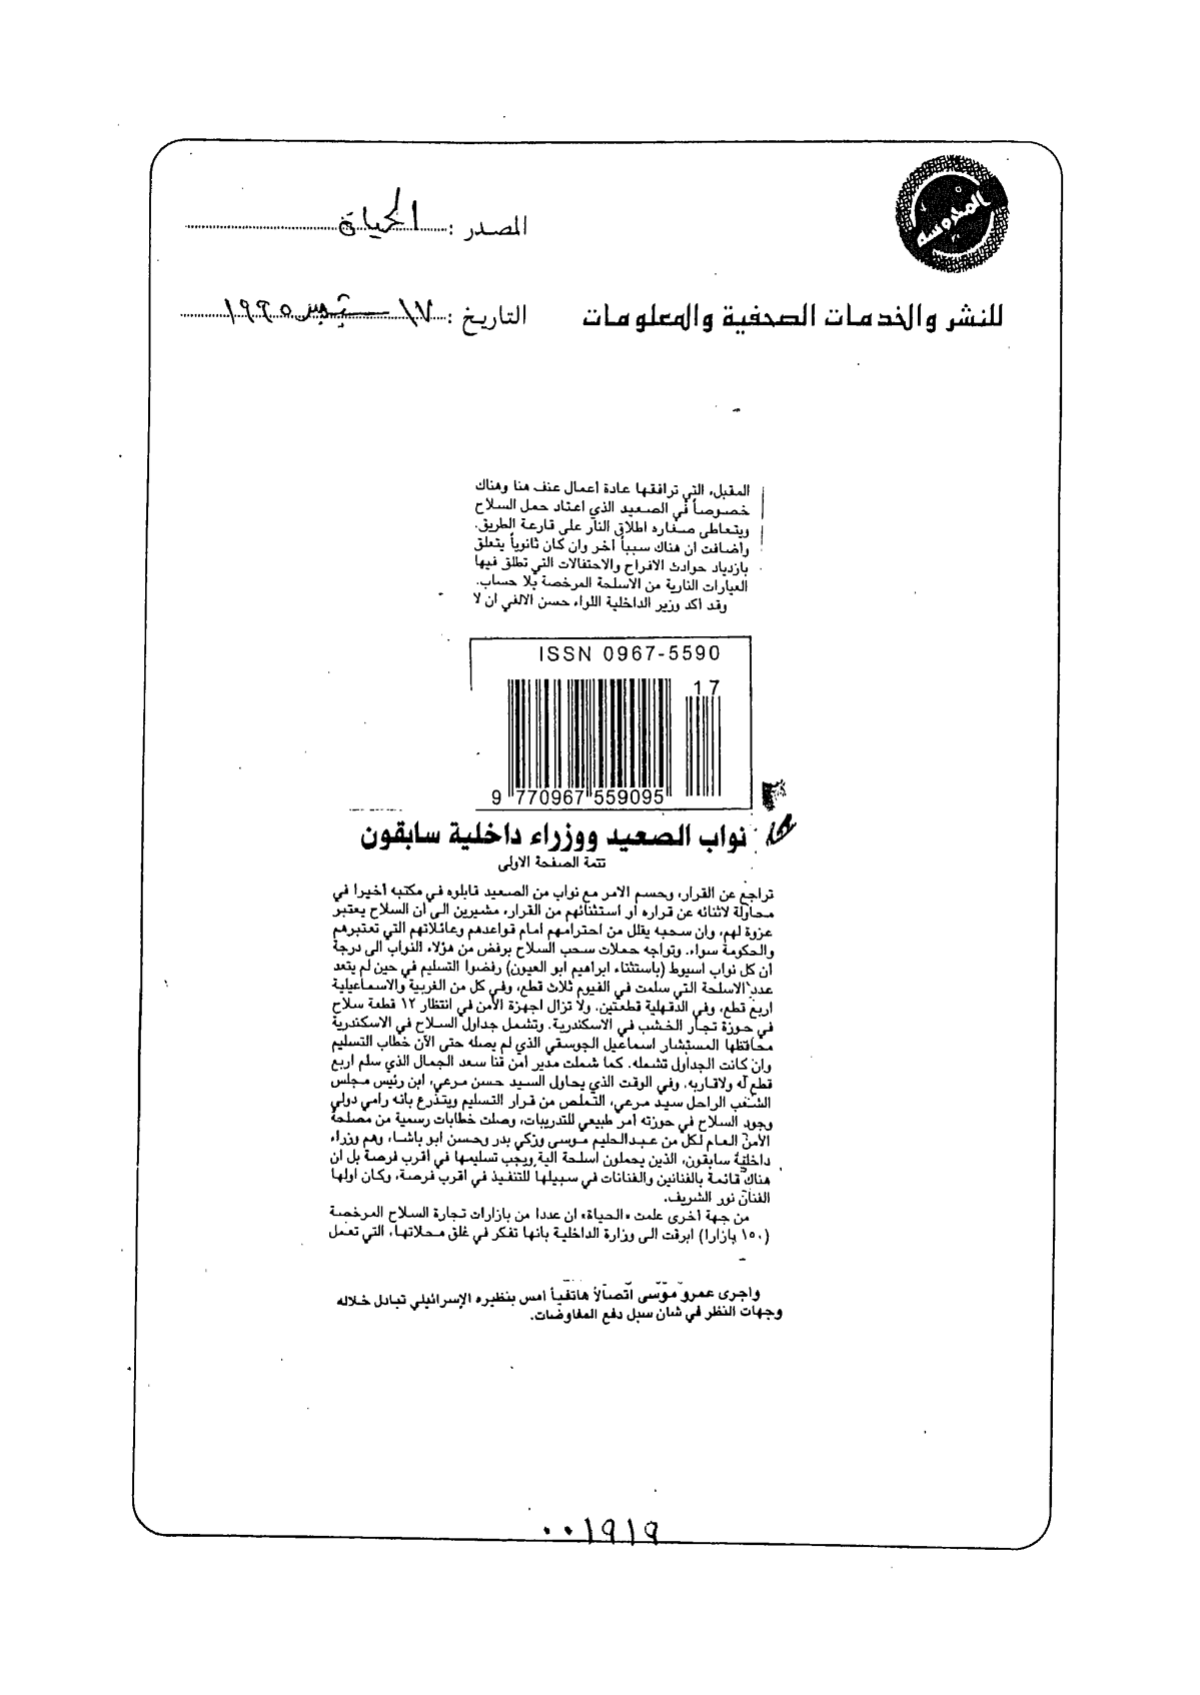 المحروسة
المصدر : الحياة
للنشر والخدمات الصحفية والمعلومات
التاريخ : ١٧ سبتمبر ١٩٩٥
المقبل، التي ترافقها عادة أعمال عنف هنا وهناك
خصوصاً في الصعيد الذي اعتاد حمل السلاح
ويتعاطى صغاره اطلاق النار على قارعة الطريق.
وأضافت ان هناك سبباً آخر وان كان ثانوياً يتعلق
بازدياد حوادث الافراح والاحتفالات التي تطلق فيها
العيارات النارية من الاسلحة المرخصة بلا حساب.
وقد أكد وزير الداخلية اللواء حسن الالفي ان لا
ISSN 0967-5590
17
9 770967 559095
نواب الصعيد ووزراء داخلية سابقون
تتمة الصفحة الاولى
تراجع عن القرار، وحسم الامر مع نواب من الصعيد قابلوه في مكتبه أخيرا في
محاولة لاثنائه عن قراره او استثنائهم من القرار، مشيرين الى ان السلاح يعتبر
عزوة لهم، وان سحبه يقلل من احترامهم امام قواعدهم وعائلاتهم التي تعتبرهم
والحكومة سواء. وتواجه حملات سحب السلاح برفض من هؤلاء النواب الى درجة
أن كل نواب اسيوط (باستثناء ابراهيم ابو العيون) رفضوا التسليم في حين لم يتعد
عدد الاسلحة التي سلمت في الفيوم ثلاث قطع، وفي كل من الغربية والاسماعيلية
اربع قطع، وفي الدقهلية قطعتين. ولا تزال اجهزة الأمن في انتظار ١٢ قطعة سلاح
في حوزة تجار الخشب في الاسكندرية. وتشمل جداول السلاح في الاسكندرية
محافظها المستشار اسماعيل الجوسقي الذي لم يصله حتى الآن خطاب التسليم
وان كانت الجداول تشمله. كما شملت مدير أمن قنا سعد الجمال الذي سلم اربع
قطع له ولاقاربه. وفي الوقت الذي يحاول السيد حسن مرعي، ابن رئيس مجلس
الشعب الراحل سيد مرعي، التملص من قرار التسليم ويتذرع بانه رامي دولي
وجود السلاح في حوزته أمر طبيعي للتدريبات، وصلت خطابات رسمية من مصلحة
الأمن العام لكل من عبدالحليم موسى وزكي بدر وحسن ابو باشا، وهم وزراء
داخلية سابقون، الذين يحملون اسلحة الية ويجب تسليمها في أقرب فرصة بل ان
هناك قائمة بالفنانين والفنانات في سبيلها للتنفيذ في اقرب فرصة، وكان اولها
الفنان نور الشريف.
من جهة أخرى علمت «الحياة» ان عددا من بازارات تجارة السلاح المرخصة
(١٥٠ بازارا) ابرقت الى وزارة الداخلية بانها تفكر في غلق محلاتها، التي تعمل
واجرى عمرو موسى اتصالاً هاتفياً أمس بنظيره الإسرائيلي تبادل خلاله
وجهات النظر في شأن سبل دفع المفاوضات.
٠٠١٩١٩